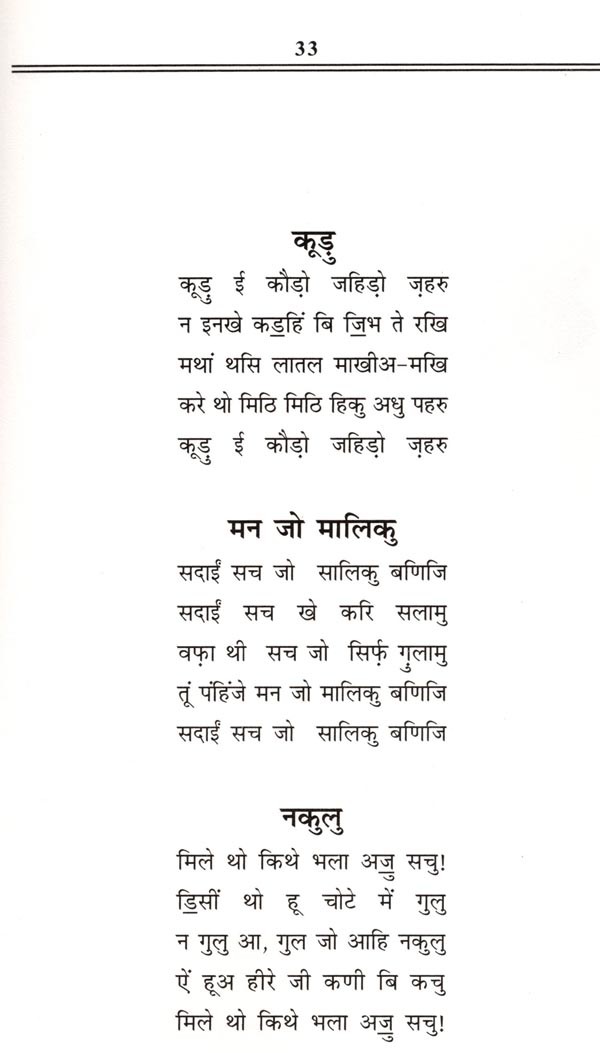 33
कूड़ु
कूड़ु ई कौड़ो जहिड़ो ज़हरु
न इनखे कॾहिं बि ॼिभ ते रखि
मथां थसि लातल माखीअ-मखि
करे थो मिठि मिठि हिकु अधु पहरु
कूड़ु ई कौड़ो जहिड़ो ज़हरु
मन जो मालिकु
सदाईं सच जो सालिकु बणिजि
सदाईं सच खे करि सलामु
वफ़ा थी सच जो सिर्फ़ ग़ुलामु
तूं पंहिंजे मन जो मालिकु बणिजि
सदाईं सच जो सालिकु बणिजि
नकुलु
मिले थो किथे भला अॼु सचु!
ॾिसीं थो हू चोटे में गुलु
न गुलु आ, गुल जो आहि नकुलु
ऐं हूअ हीरे जी कणी बि कचु
मिले थो किथे भला अॼु सचु!